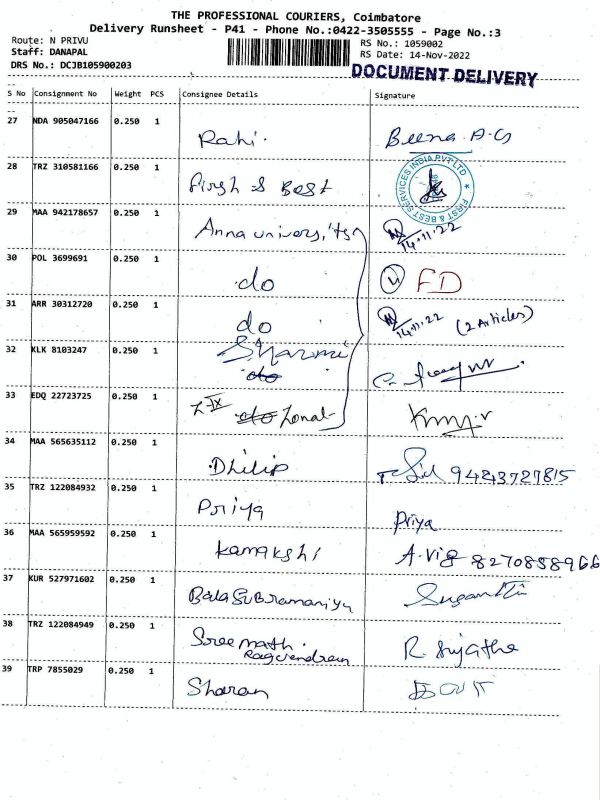 THE PROFESSIONAL COURIERS, Coimbatore
Delivery Runsheet - P41 - Phone No.:0422-3505555 - Page No.:3
Route: N PRIVU
Staff: DANAPAL
DRS No.: DCJB105900203
RS No.: 1059002
RS Date: 14-Nov-2022
DOCUMENT DELIVERY
S No Consignment No Weight PCS Consignee Details Signature
27 NDA 905047166 0.250 1
Rahi. Beena A.G
28 TRZ 310581166 0.250 1
First & Best
FIRST & BEST SERVICES INDIA PVT LTD
29 MAA 942178657 0.250 1
Anna univers,ity 14.11.22
30 POL 3699691 0.250 1
do FD
31 ARR 30312720 0.250 1
do 14.11.22 (2 Articles)
32 KLK 8103247 0.250 1
Sharmi
do
33 EDQ 22723725 0.250 1
Z-IX do Zonal
34 MAA 565635112 0.250 1
Dhilip 9443727815
35 TRZ 122084932 0.250 1
Priya Priya
36 MAA 565959592 0.250 1
Kamakshi A.Vig 8270858966
37 KUR 527971602 0.250 1
BalaSubramaniyu
38 TRZ 122084949 0.250 1
Sree mathi R. Sujatha
Ragavendran
39 TRP 7855029 0.250 1
Sharan